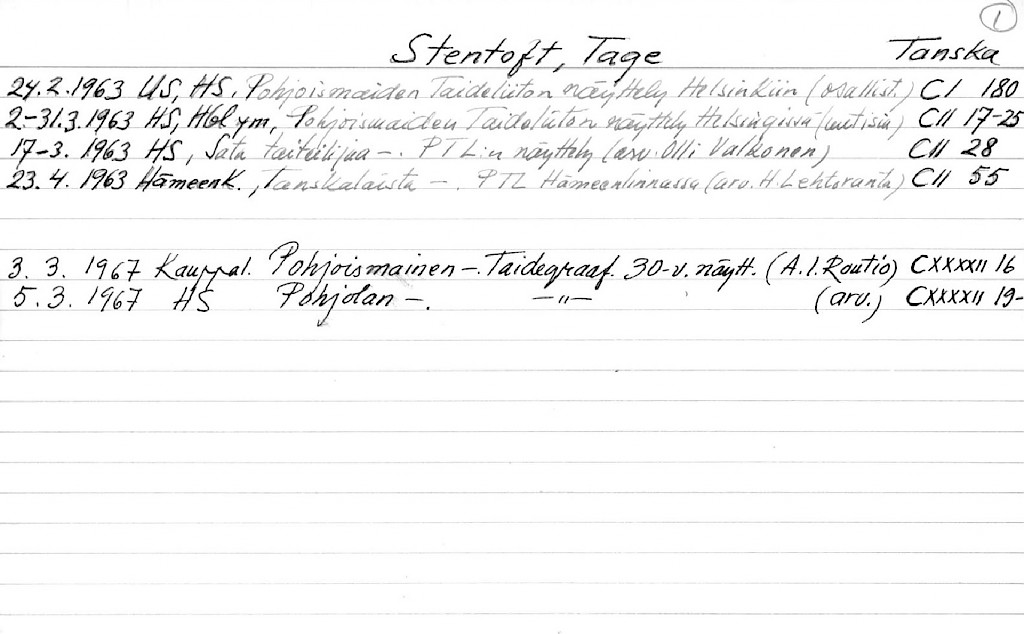 1
Stentoft, Tage Tanska
24.2.1963 US, HS. Pohjoismaiden Taideliiton näyttely Helsinkiin (osallist.) CI 180
2-31.3.1963 HS, Hbl ym, Pohjoismaiden Taideliiton näyttely Helsingissä (uutisia) CII 17-25
17-3. 1963 HS, Sata taiteilijaa -. PTL:n näyttely (arv. Olli Valkonen) CII 28
23. 4. 1963 Hämeenk., Tanskalaista -. PTL Hämeenlinnassa (arv. H. Lehtoranta) CII 55
3. 3. 1967 Kauppal. Pohjoismainen -. Taidegraaf. 30-v. näytt. (A.I. Routio) CXXXXII 16
5. 3. 1967 HS Pohjolan -. -"- (arv.) CXXXXII 19-